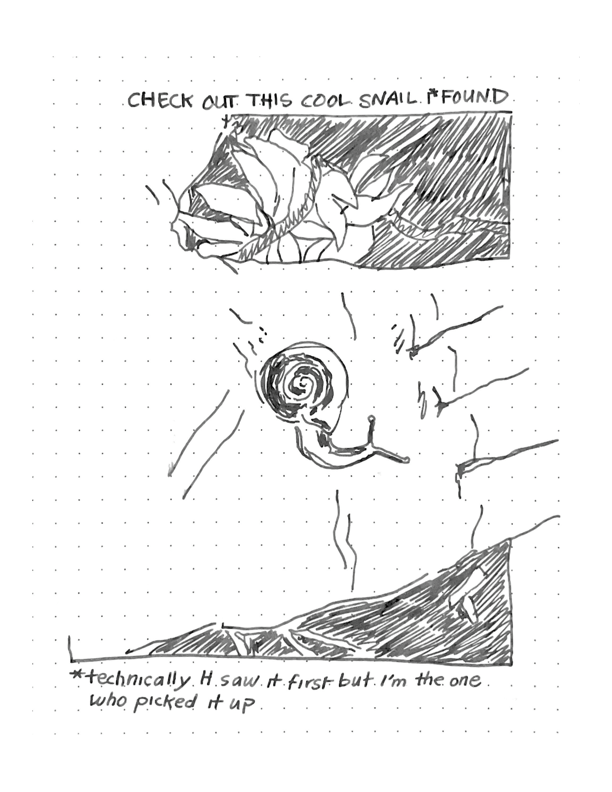 CHECK OUT THIS COOL SNAIL I*FOUND
*technically H saw it first but I'm the one
who picked it up